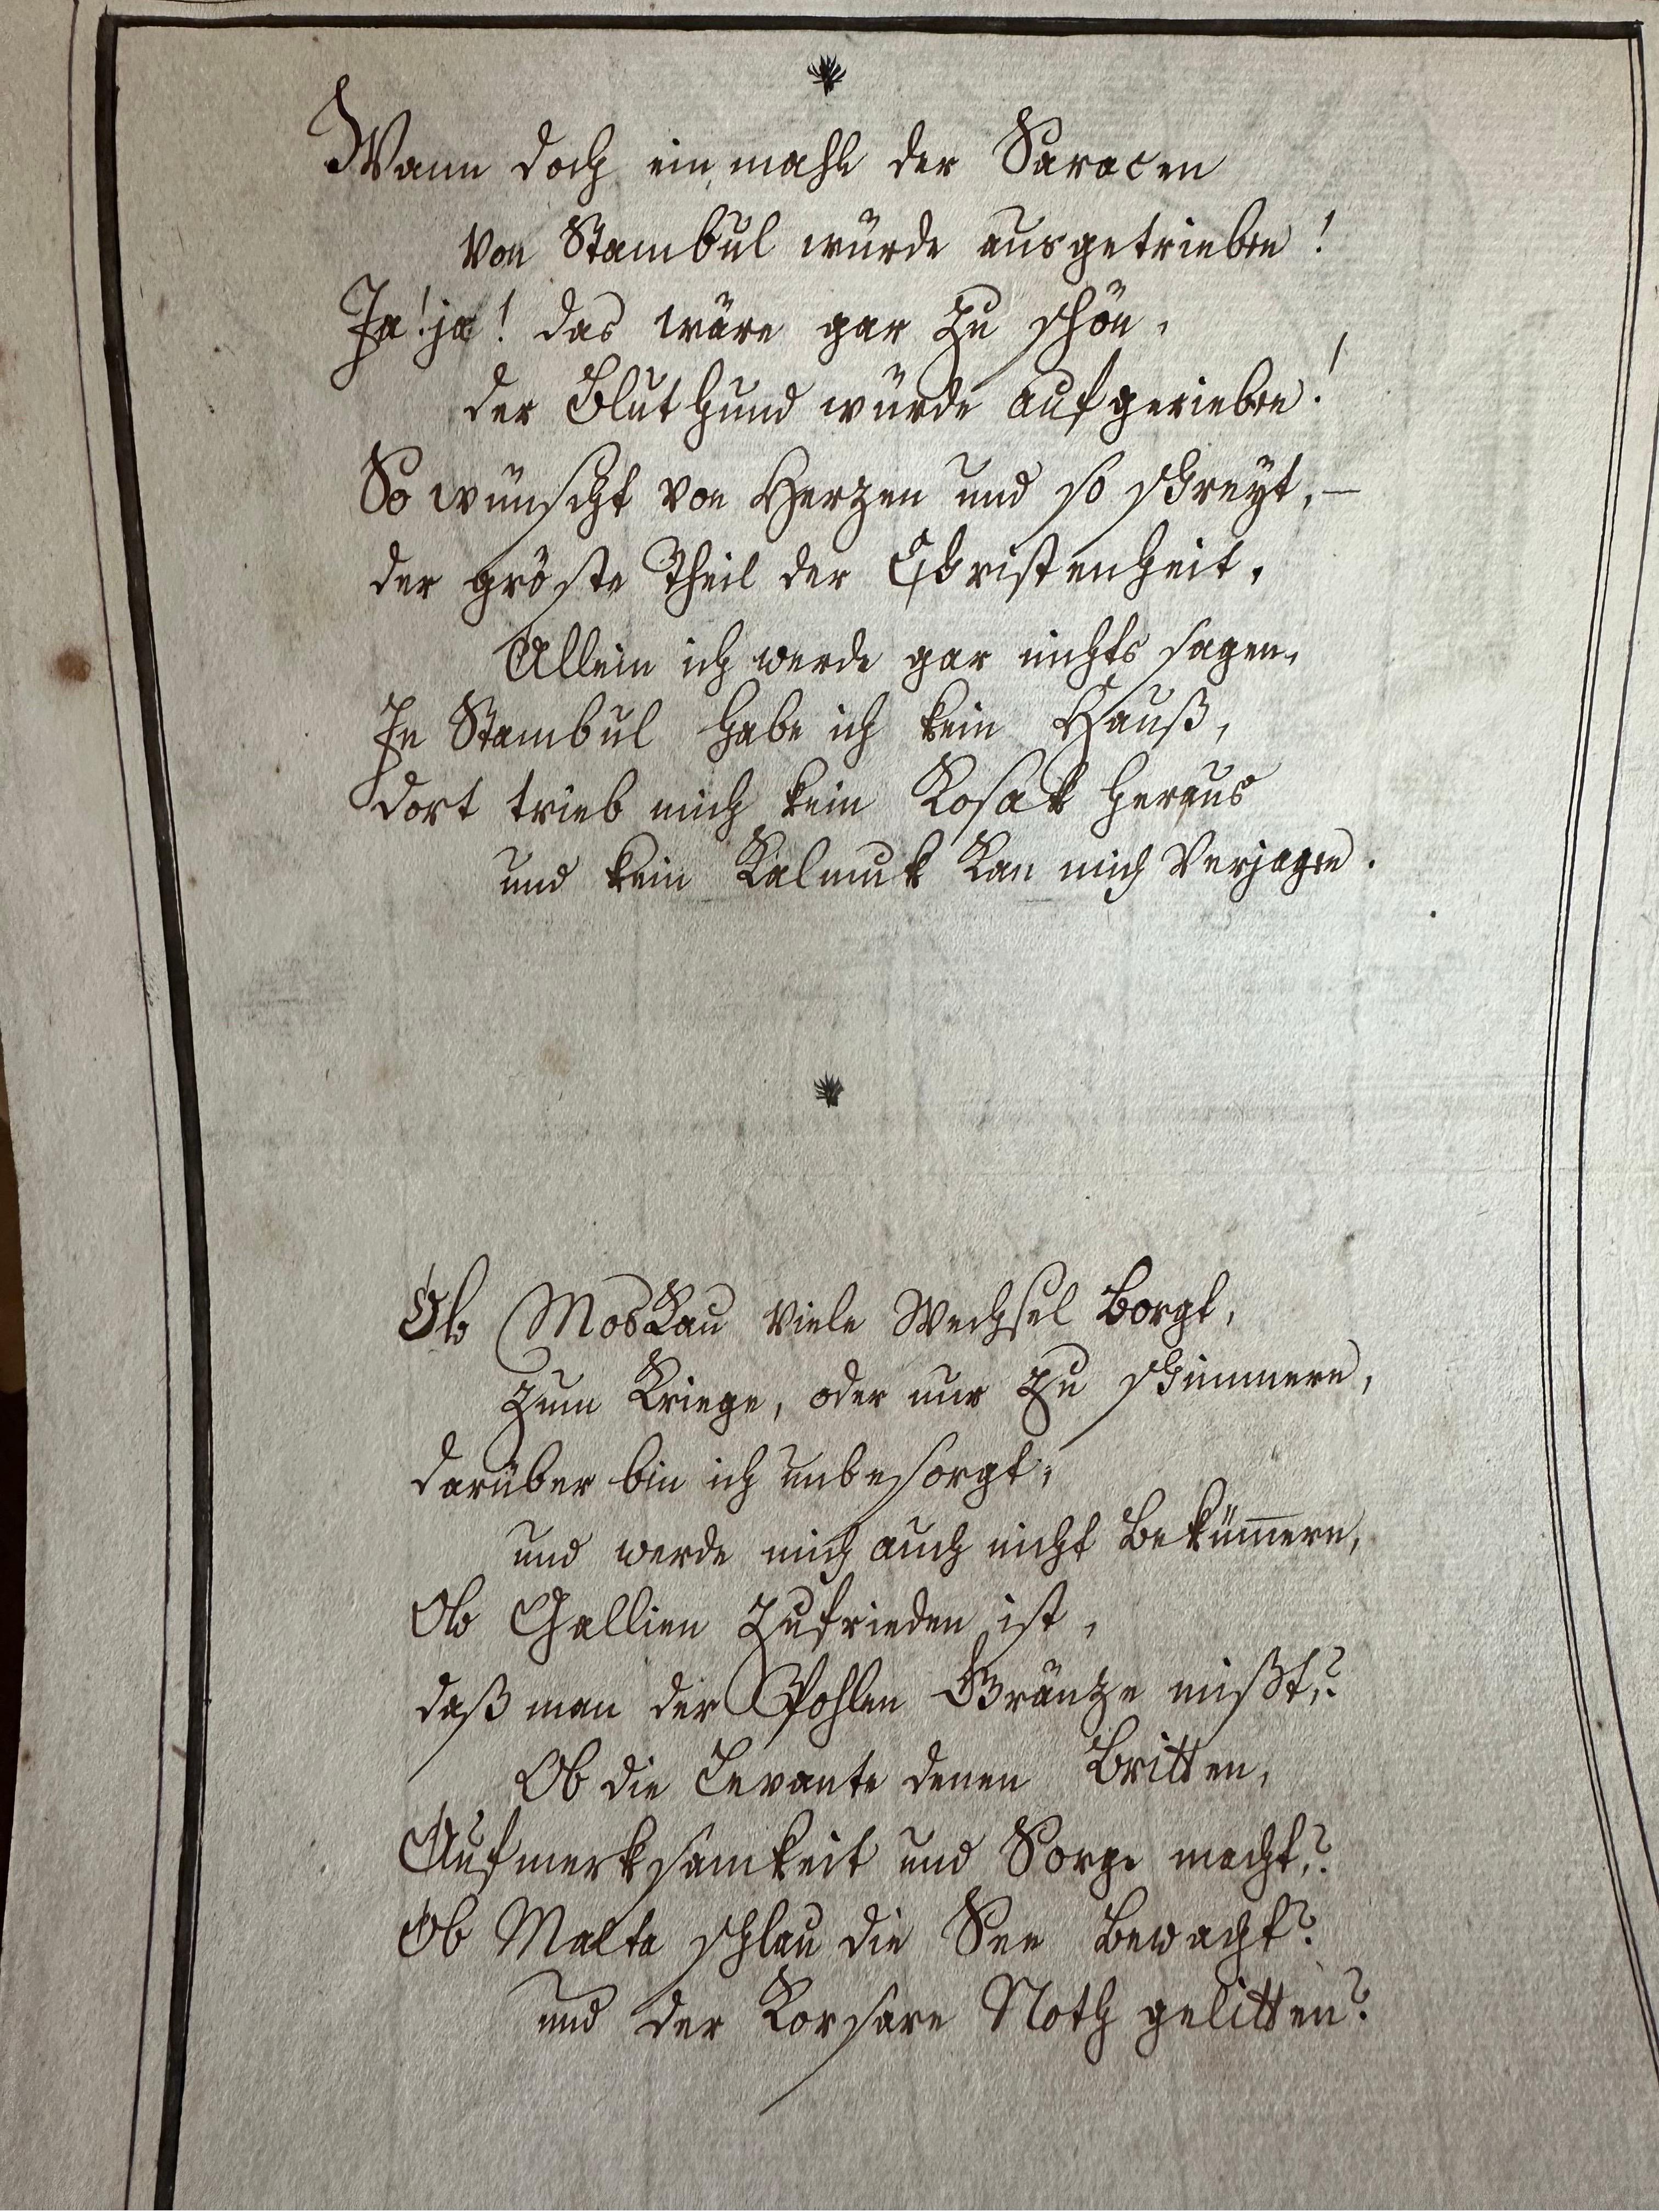 Wann doch ein mahl der Saracen
von Stambul würde ausgetrieben!
Ja! ja! das wäre gar zu schön,
der Bluthund würde aufgerieben!
So wünscht von Herzen und so schreyt, —
der gröste Theil der Christenheit.
Allein ich werde gar nichts sagen,
In Stambul habe ich kein Hauß,
dort trieb mich kein Kosak heraus
und kein Kalmuk kan mich verjagen.
Ob Moskau viele Wechsel borgt,
zum Kriege, oder nur zu schimmern,
darüber bin ich unbesorgt;
und werde mich auch nicht beküm̅ern,
Ob Gallien zufrieden ist,
daß man der Pohlen Gränze mißt?
Ob die Levante denen Britten,
Aufmerksamkeit und Sorge macht?
Ob Malta schlau die See bewacht?
und der Korsare Noth gelitten?